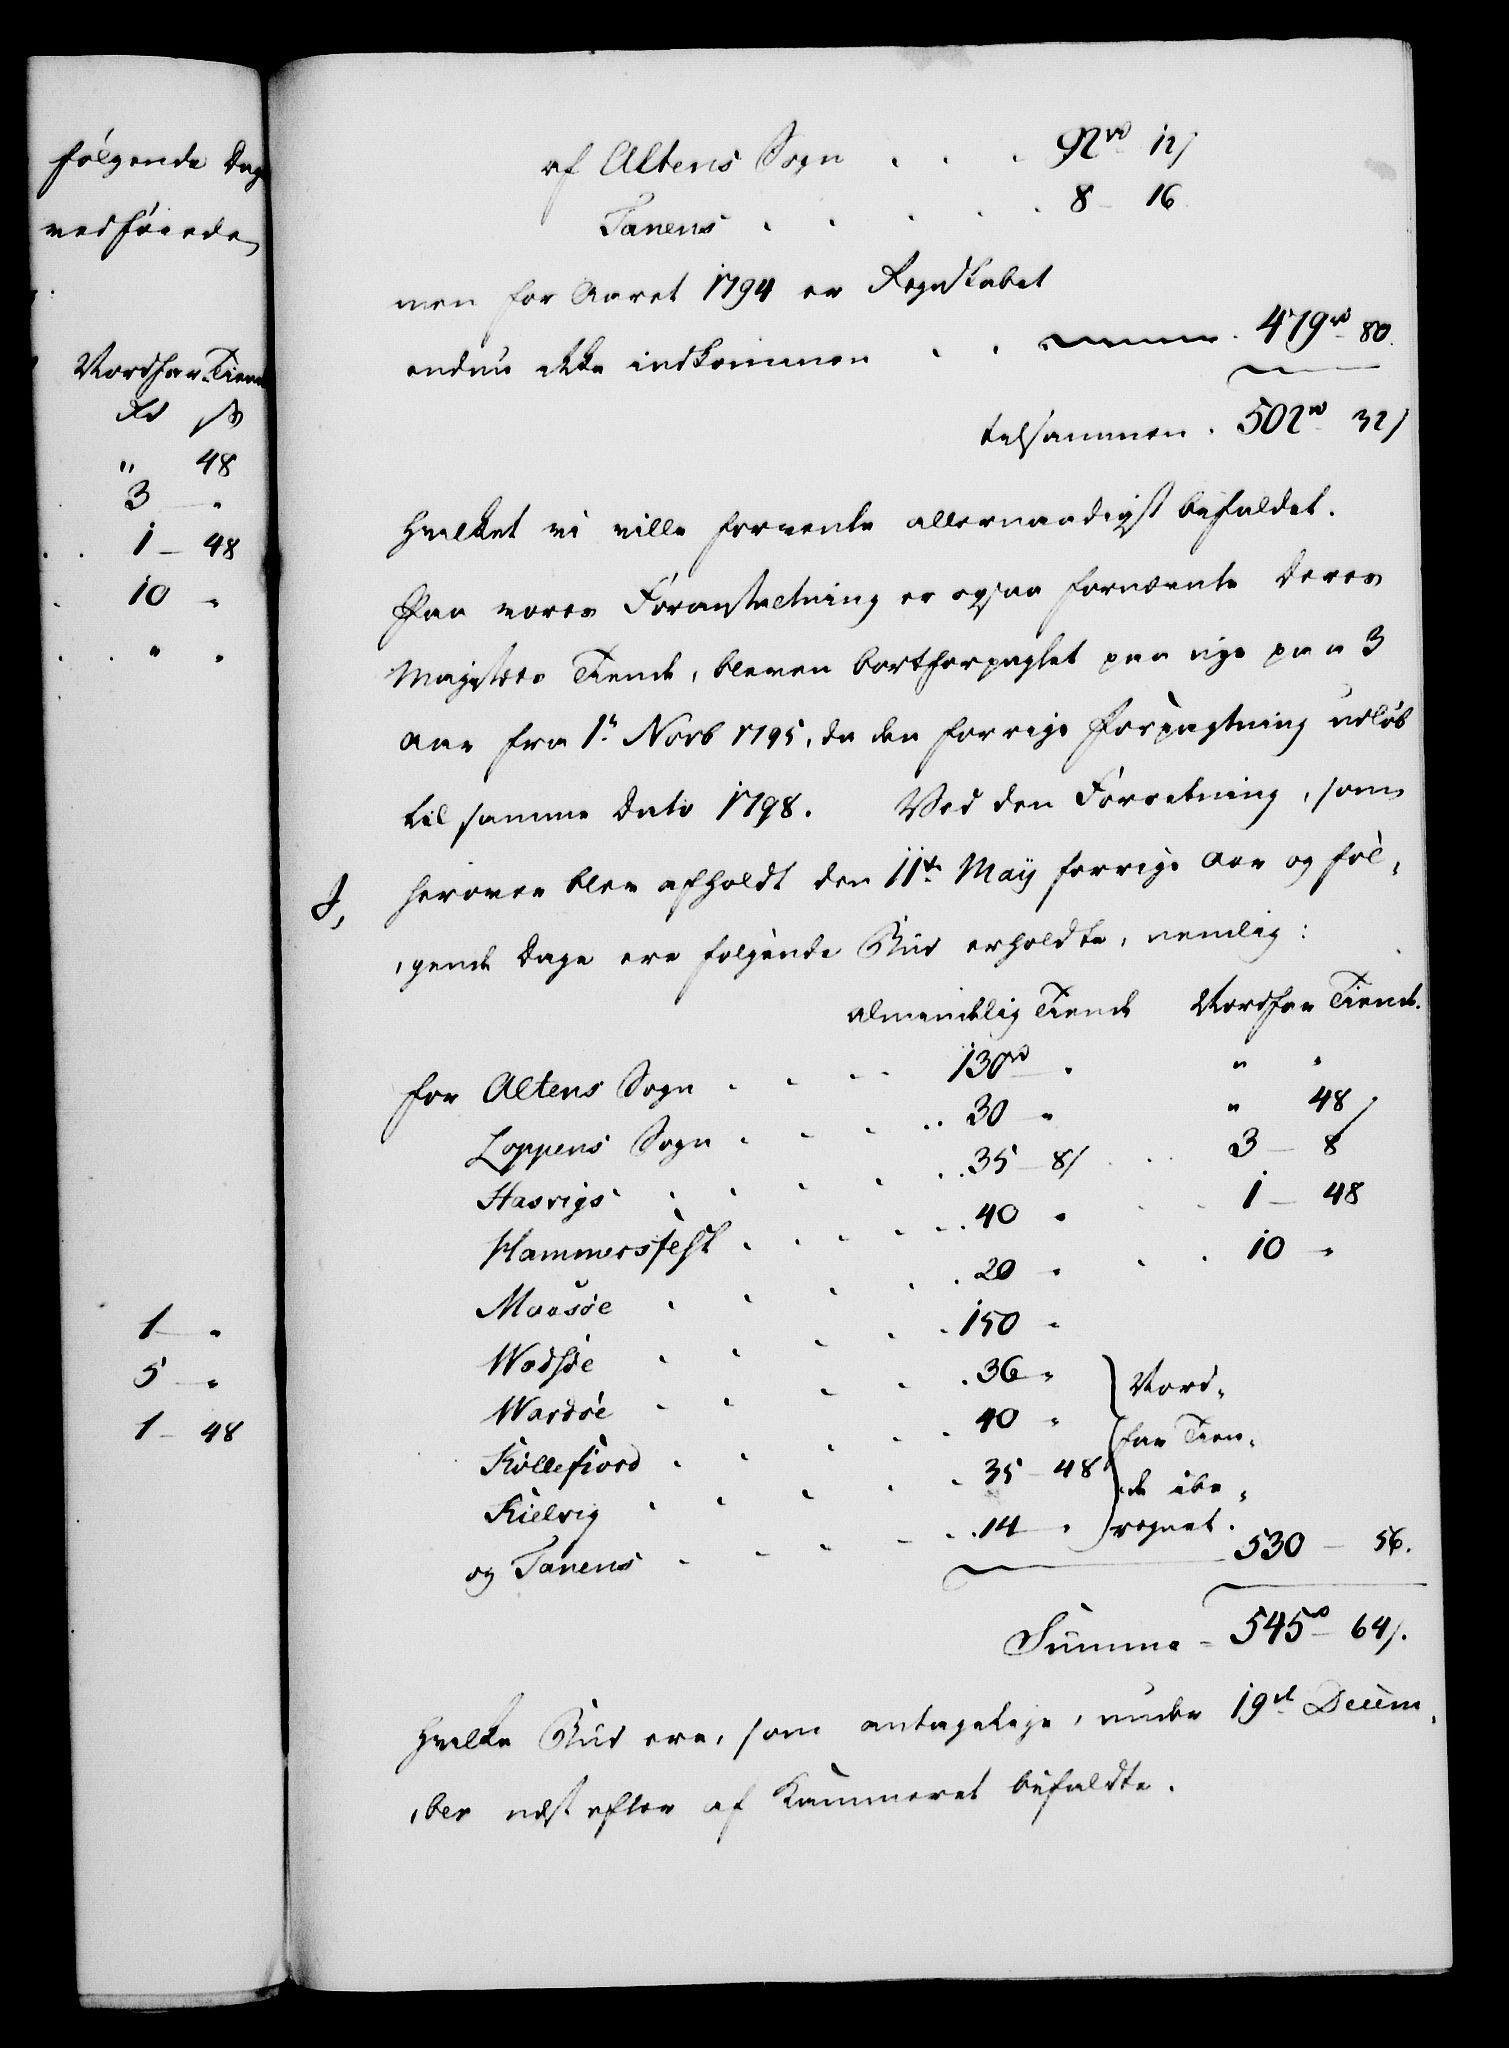 følgende Dag
vedføiede
Nordfar-Tiende
Rd ß
" 48
3 — "
1 — 48
10 "
" "
1 — "
5 — "
1 — 48
af Altens Sogn . . . 92rd 12ß
Tanens . . . . . 8 — 16
men for Aaret 1794 er Regnskabet
endnu ikke indkommen . . 479rd 80.
tilsammen . 502rd 32ß
hvilket vi ville forvente allernaadigst bifaldet.
Paa vores Foranstaltning er ogsaa fornævnte Deres
Majestets Tiende, bleven bortforpagtet paa nye paa 3
Aar fra 1te Novb 1795, da den forrige Forpagtning udløb
til samme Dato 1798. Ved den Forretning, som
J, herover blev afholdt den 11te Maÿ forrige Aar og føl-
gende Dage ere følgende Bud erholdte, nemlig:
almindelig Tiende Nordfar Tiende.
for Altens Sogn . . . . 130rd " " "
Loppens Sogn . . . . 30 " " 48ß
Hasvigs . . . . . 35 — 8ß . . 3 — 8
Hammersfest . . . . . 40 " . . 1 — 48
Maasøe . . . . . 20 " . . 10 "
Wadsøe . . . . . 150 "
Wardøe . . . . . 36 " Nord-
Kiøllefiord . . . . 40 " far Tien-
Kielvig . . . . . 35 — 48 de ibe-
og Tanens . . . . . 14 " regnet. 530 — 56.
Summa — 545rd — 64ß.
hvilke Bud ere, som antagelige, under 19de Decem-
ber næst efter af Kammeret bifaldte.